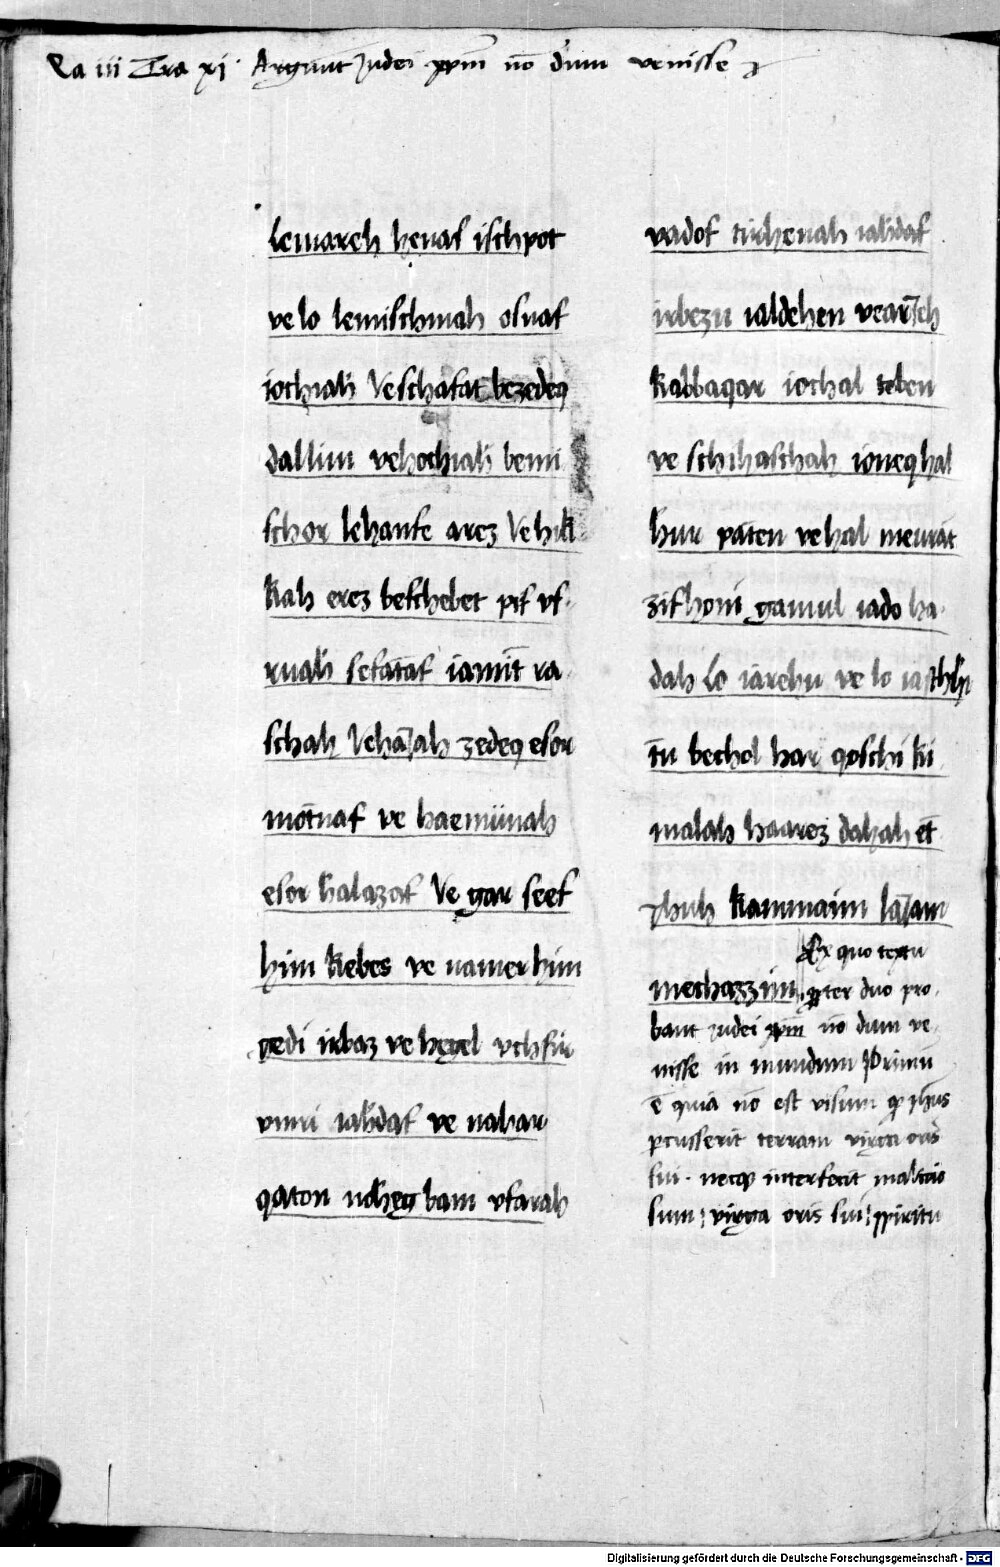 Ra iii Tra xi Arguunt Judei xpm no dum venisse
lemareh henaf ischpot
ve lo lemischmah osnaf
iochiah Veschafat bezedeq
dallim vehochiah bemi
schor lehanfe arez Vehik
kah erez befchebet pif vf
ruah sefataf iamit ra
schah Vehaiah zedeq esor
motnaf ve haemunah
esor halazaf Ve gar seef
him kebes ve namer him
gedi irbaz ve hegel vchfir
vmri iahdaf ve nahar
qaton noheg bam vfarah
vadof tirhenah iahdaf
irbezu ialdehen vearieh
kabbaqar iochal teben
ve schihaschah ioneq hal
hur paten vehal meurat
zifhoni gamul iado ha
dah lo iarehu ve lo iaschhi
tu bechol har qoschi ki
malah haarez dahah et
kammaim laiam
mechazzim Ex quo textu
propter duo pro
bant Judei xpm no dum ve
nisse in mundum Primu
e quia no est visum
percusserit terram virga oris
sui neque interfecit
sum virga oris sui spiritu
Digitalisierung gefördert durch die Deutsche Forschungsgemeinschaft - DFG